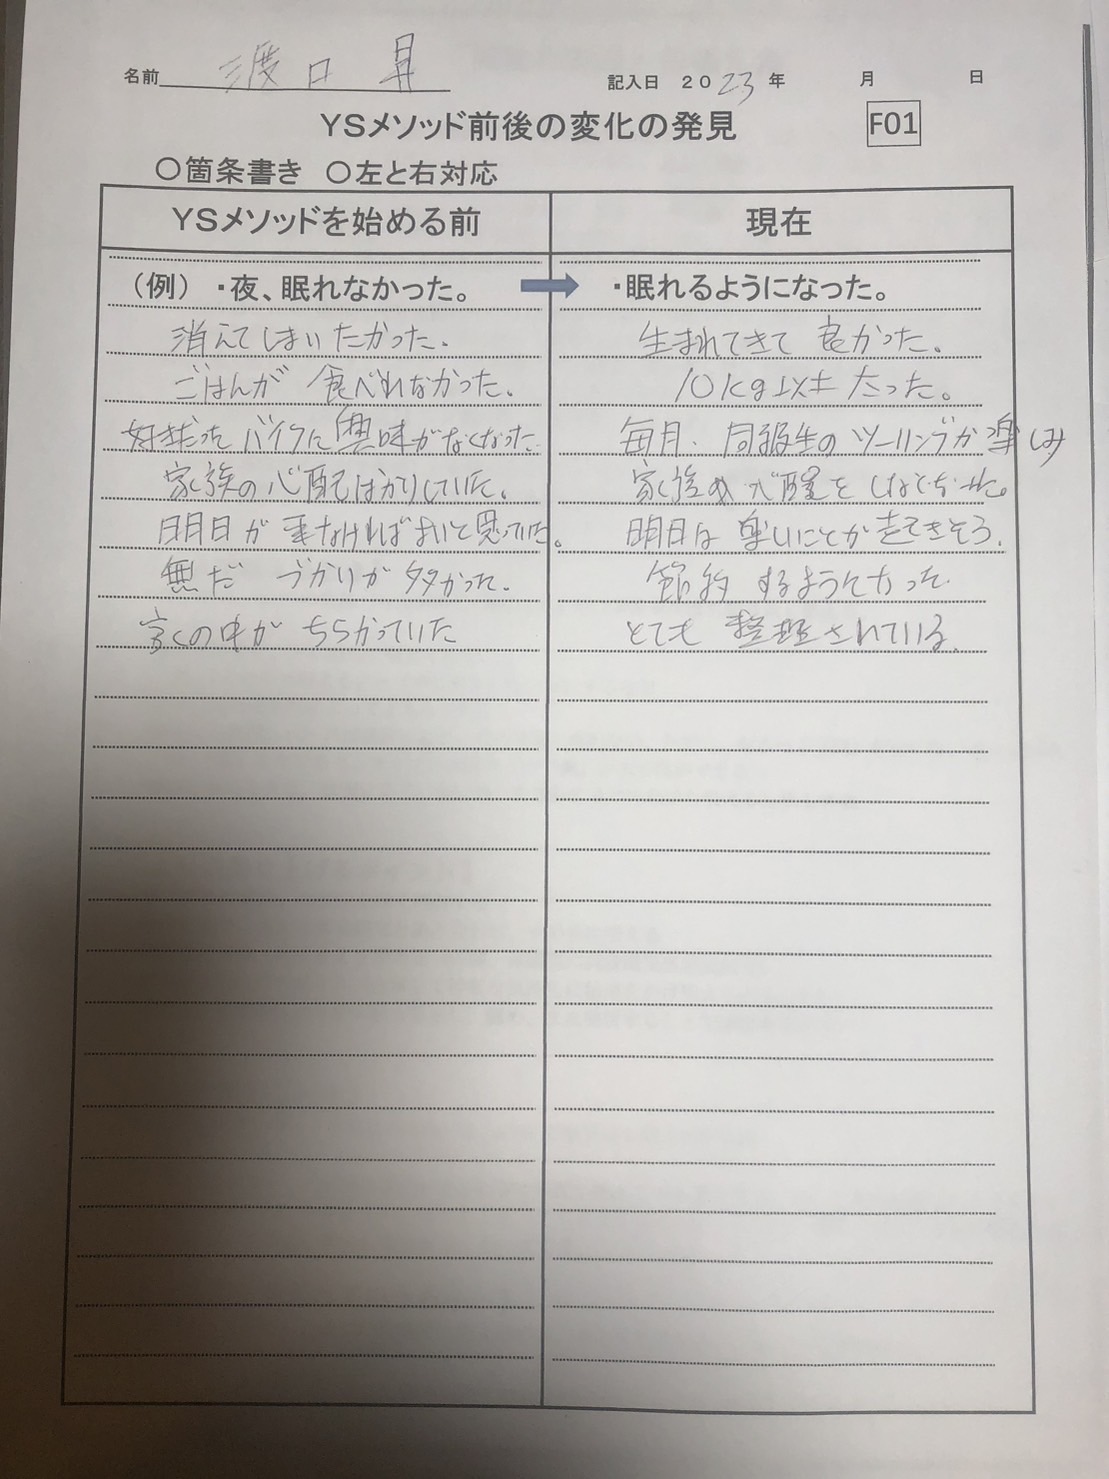 名前 渡口 昇
記入日 2023年 月 日
YSメソッド前後の変化の発見 F01
○箇条書き ○左と右対応
YSメソッドを始める前 現在
(例) ・夜、眠れなかった。 ・眠れるようになった。
消えてしまいたかった。 生まれてきて良かった。
ごはんが食べれなかった。 10kg以上太った。
好きだったバイクに興味がなくなった 毎月、同級生のツーリングが楽しみ
家族の心配ばかりしていた。 家族の心配をしなくなった。
明日が来なければよいと思っていた。 明日は楽しいことが起きそう。
無だづかいが多かった。 節約するようになった
家の中がちらかっていた とても整理されている。